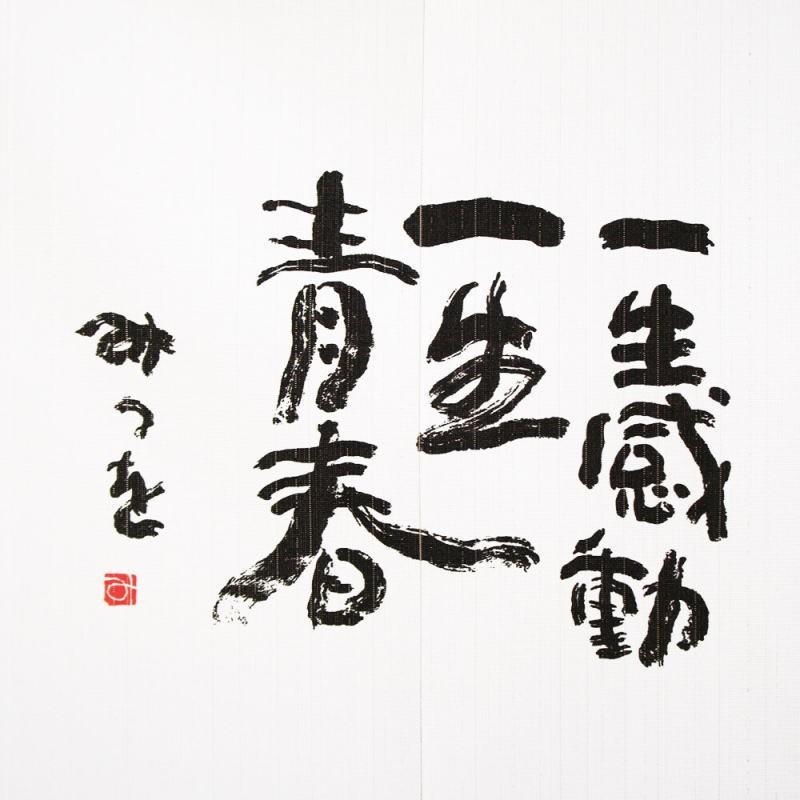 一生感動
一生
青春
みつを
み